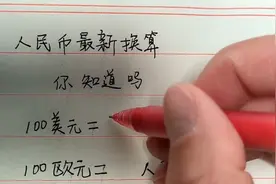 人民币最新换算
你知道吗
100美元=
100欧元= 人